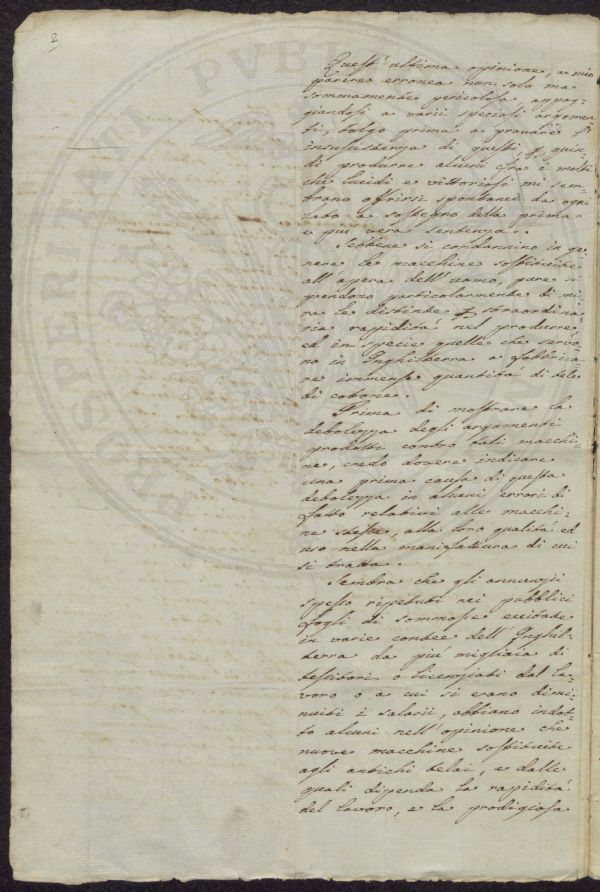 2
PROSPERITATI PVBLI
Quest' ultima opinione, a mio
parere erronea non solo ma
sommamente pericolosa appog-
giandosi a varii speciali argomen-
ti, tolgo prima a provare l'
insussistenza di questi, p. quin-
di produrne alcuni fra i molti
che lucidi e vittoriosi mi sem-
brano offrirsi spontanei da ogni
lato a sostegno della prima
e più vera sentenza.
Sebbene si condannino in ge-
nera le macchine sostituite
all'opera dell'uomo, pure si
prendono particolarmente di mi-
ra le distinte p. straordina-
ria rapidità nel produrre,
ed in specie quelle che servo-
no in Inghilterra a fabbrica-
re immense quantità di tele
di cotone.
Prima di mostrare la
debolezza degli argomenti
prodotti contro tali macchi-
ne, credo dovere indicare
una prima causa di questa
debolezza in alcuni errori di
fatto relativi alle macchi-
ne stesse, alla loro qualità ed
uso nella manifattura di cui
si tratta.
Sembra che gli annunzi
spesso ripetuti nei pubblici
fogli di sommosse eccitate
in varie contee dell'Inghil-
terra da più migliaia di
tessitori o licenziati dal la-
voro o a cui si erano dimi-
nuiti i salarii, abbiano indot-
to alcuni nell'opinione che
nuove macchine sostituite
agli antichi telai, e dalle
quali dipenda la rapidità
del lavoro, e la prodigiosa